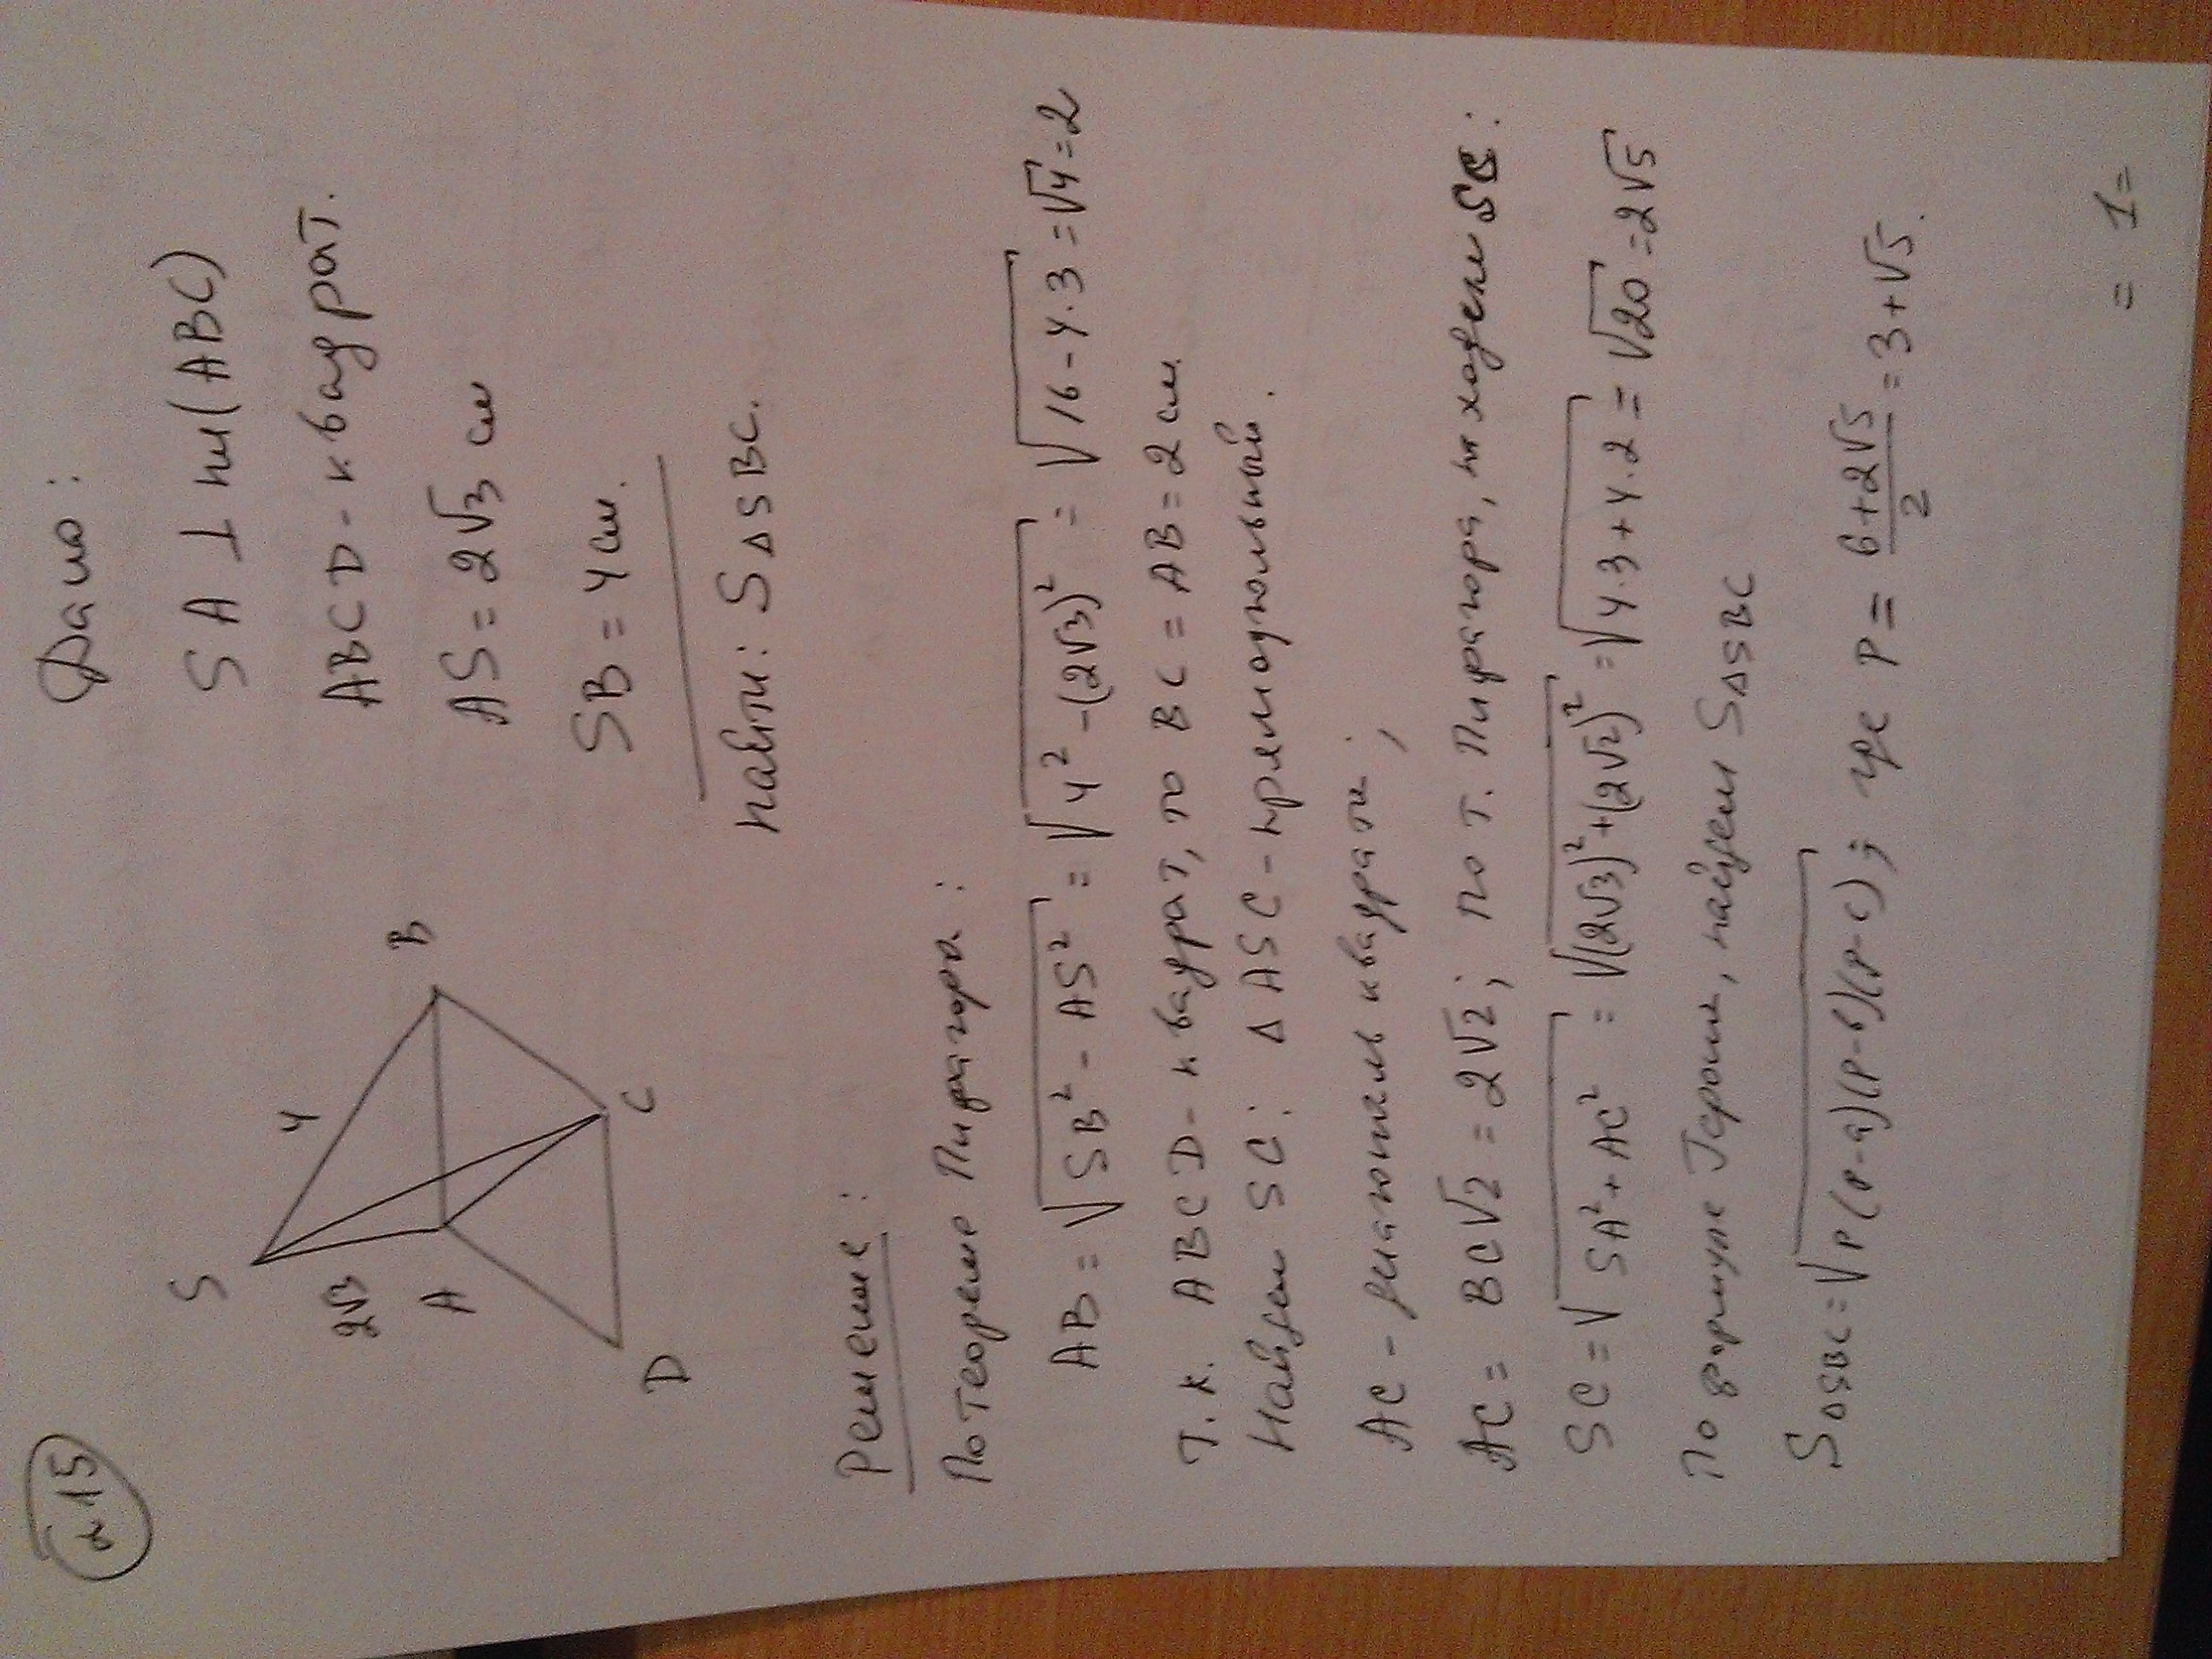 №15
Дано:
SA ⊥ пл(ABC)
ABCD - квадрат.
AS = 2√3 см
SB = 4 см.
Найти: S△SBC.
S
4
2√3
A
B
C
D
Решение:
По теореме Пифагора:
AB = √(SB² - AS²) = √(4² - (2√3)²) = √(16 - 4·3) = √4 = 2
Т.к. ABCD - квадрат, то BC = AB = 2 см.
Найдем SC: △ASC - прямоугольный.
AC - диагональ квадрата;
AC = BC√2 = 2√2; по т. Пифагора, находим SC:
SC = √(SA² + AC²) = √((2√3)² + (2√2)²) = √(4·3 + 4·2) = √20 = 2√5
По формуле Герона, найдем S△SBC
S△SBC = √(P(P-a)(P-b)(P-c)); где P = (6+2√5)/2 = 3+√5.
= 1 =